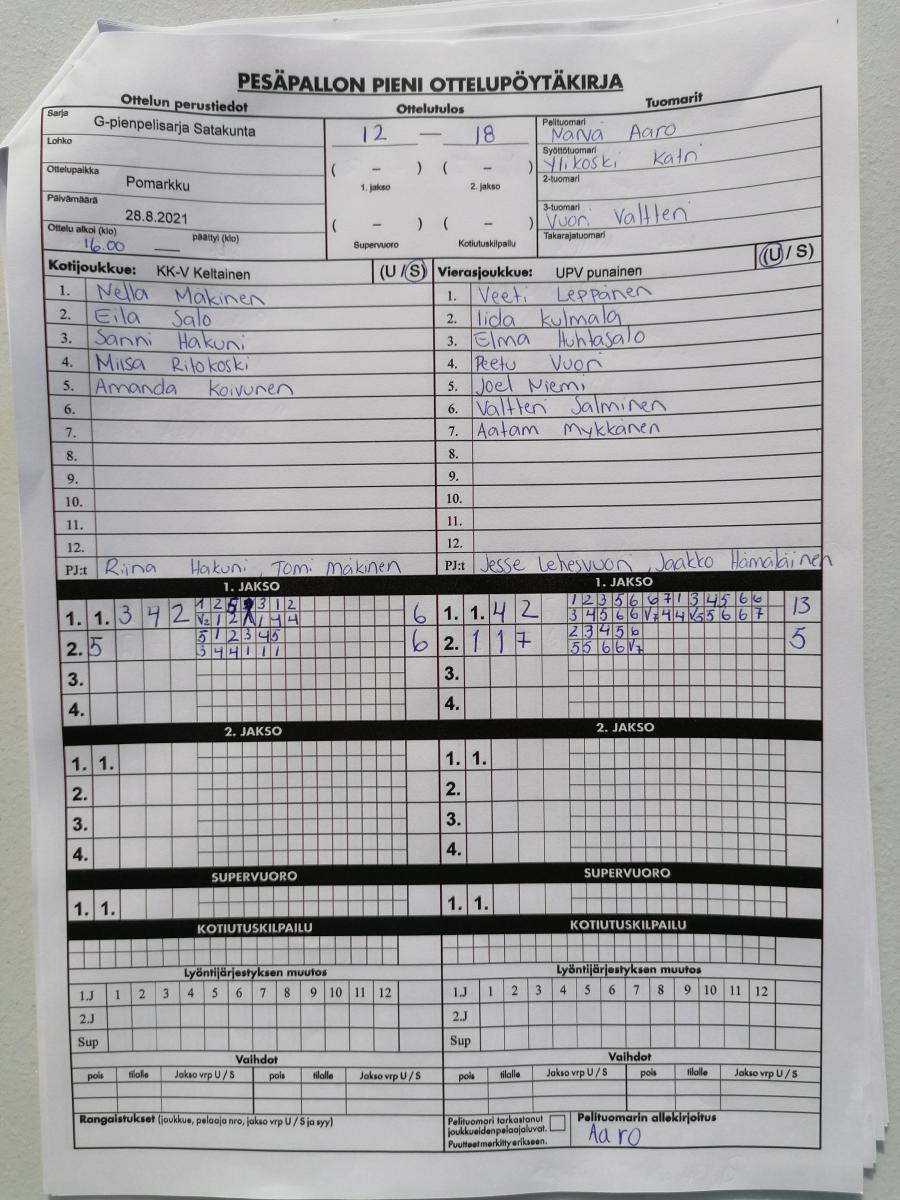 PESÄPALLON PIENI OTTELUPÖYTÄKIRJA
Ottelun perustiedot
Sarja
G-pienpelisarja Satakunta
Lohko
Ottelupaikka
Pomarkku
Päivämäärä
28.8.2021
Ottelu alkoi (klo) päättyi (klo)
16.00
Ottelutulos
12 — 18
( – ) ( – )
1. jakso 2. jakso
( – ) ( – )
Supervuoro Kotiutuskilpailu
Tuomarit
Pelituomari
Narva Aaro
Syöttötuomari
Ylikoski Katri
2-tuomari
3-tuomari
Vuori Valtteri
Takarajatuomari
Kotijoukkue: KK-V Keltainen (U/S)
1. Nella Mäkinen
2. Eila Salo
3. Sanni Hakuni
4. Miisa Ritokoski
5. Amanda Koivunen
6.
7.
8.
9.
10.
11.
12.
PJ:t Riina Hakuni, Tomi mäkinen
Vierasjoukkue: UPV punainen (U/S)
1. Veeti Leppänen
2. Iida Kulmala
3. Elma Huhtasalo
4. Peetu Vuori
5. Joel Niemi
6. Valtteri Salminen
7. Aatam Mykkänen
8.
9.
10.
11.
12.
PJ:t Jesse Lehesvuori, Jaakko Hämäläinen
1. JAKSO
1. 1. 3 4 2 6
2. 5 5 1 2 3 4 5 6
3 4 4 1 1 1
3.
4.
1. JAKSO
1. 1. 4 2 1 2 3 5 6 6 7 1 3 4 5 6 6 13
3 4 5 6 6 V7 4 4 V5 5 6 6 7
2. 1 1 7 2 3 4 5 6 5
5 5 6 6 V7
3.
4.
2. JAKSO
1. 1.
2.
3.
4.
2. JAKSO
1. 1.
2.
3.
4.
SUPERVUORO
1. 1.
SUPERVUORO
1. 1.
KOTIUTUSKILPAILU
KOTIUTUSKILPAILU
Lyöntijärjestyksen muutos
1.J 1 2 3 4 5 6 7 8 9 10 11 12
2.J
Sup
Lyöntijärjestyksen muutos
1.J 1 2 3 4 5 6 7 8 9 10 11 12
2.J
Sup
Vaihdot
pois tilalle Jakso vrp U / S pois tilalle Jakso vrp U / S
Vaihdot
pois tilalle Jakso vrp U / S pois tilalle Jakso vrp U / S
Rangaistukset (joukkue, pelaaja nro, jakso vrp U / S ja syy)
Pelituomari tarkastanut
joukkueidenpelaajaluvat.
Puutteet merkitty erikseen.
Pelituomarin allekirjoitus
Aaro